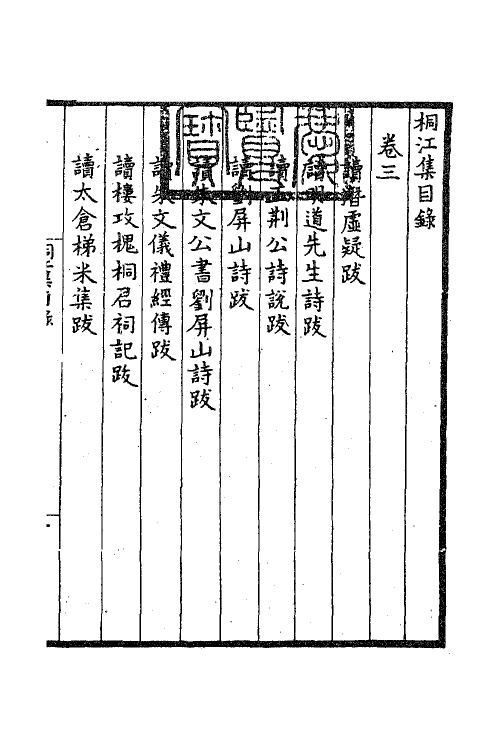 桐江集目錄
卷三
讀潛虛疑跋
讀明道先生詩跋
讀荆公詩說跋
讀劉屏山詩跋
讀朱文公書劉屏山詩跋
讀朱文儀禮經傳跋
讀樓攻槐桐君祠記跋
讀太倉梯米集跋
桐江集目錄